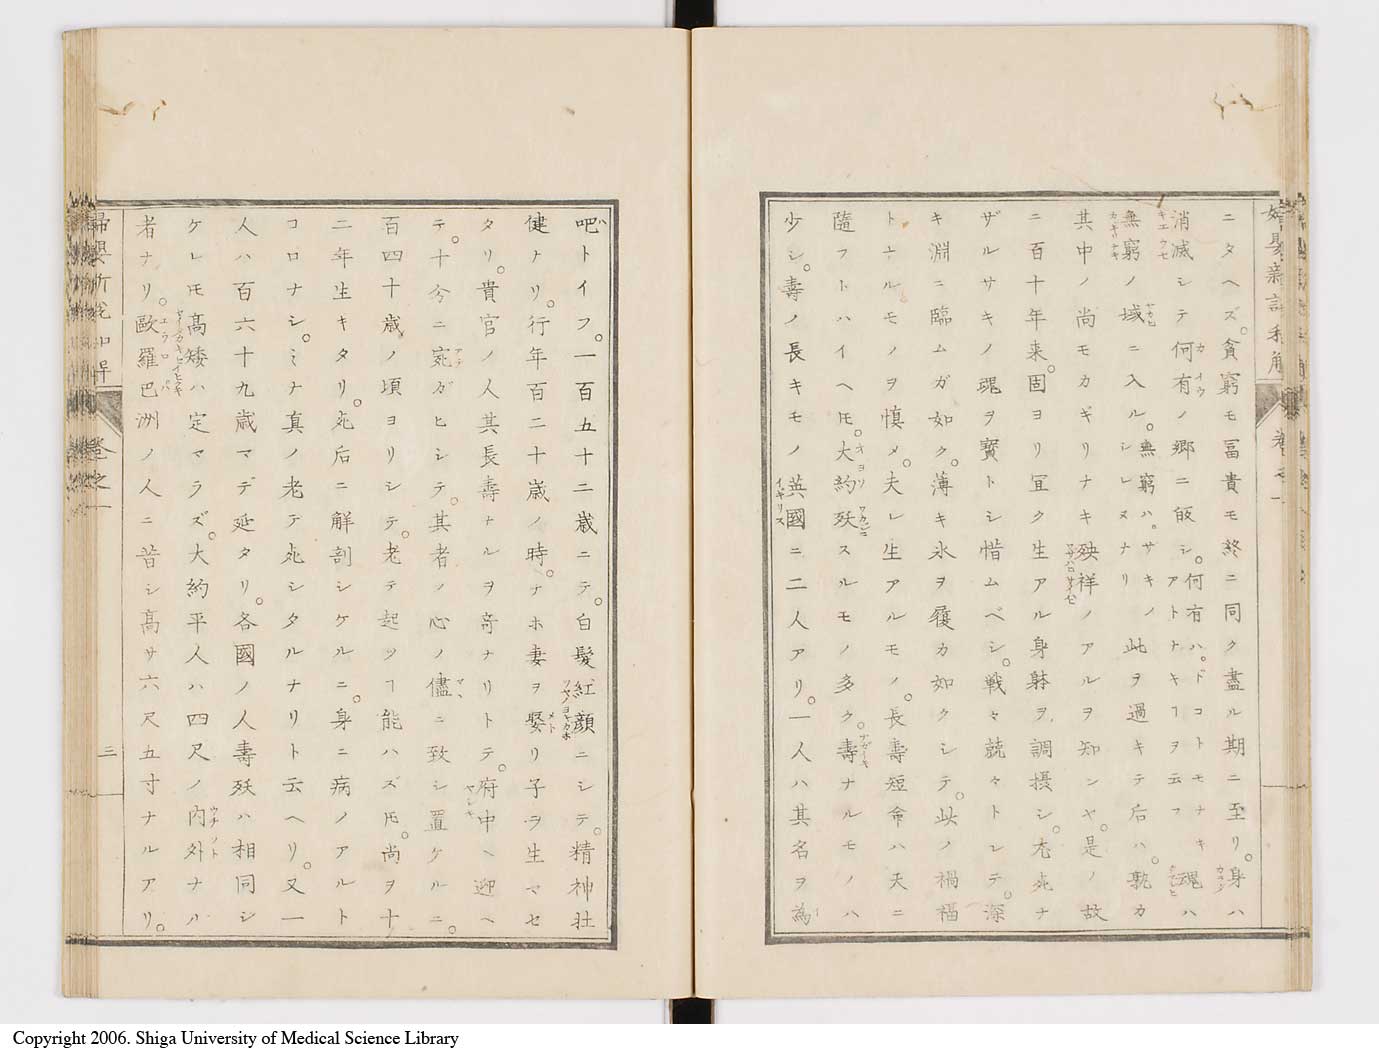 ニタヘズ。貪窮モ冨貴モ終ニ同ク盡ル期ニ至リ。身ハ
消滅シテ何有ノ郷ニ皈シ。何有ハ。ドコトモナキ アトナキヿヲ云フ 魂ハ
無窮ノ域ニ入ル。無窮ハ。サキノ シレヌナリ 此ヲ過キテ后ハ。孰カ
其中ノ尚モカギリナキ殃祥ノアルヲ知ンヤ。是ノ故
ニ百十年来。固ヨリ冝ク生アル身躰ヲ調摂シ。尤死ナ
ザルサキノ魂ヲ寳トシ惜ムベシ。戦々兢々トシテ。深
キ淵ニ臨ムガ如ク。薄キ氷ヲ履カ如クシテ。此ノ禍福
トナルモノヲ慎メ。夫レ生アルモノ。長壽短命ハ天ニ
隨フトハイヘ𪜈。大約殀スルモノ多ク。壽ナルモノハ
少シ。壽ノ長キモノ英國ニ二人アリ。一人ハ其名ヲ為
吧トイフ。一百五十二歳ニテ。白髮紅顔ニシテ。精神壮
健ナリ。行年百二十歳ノ時。ナホ妻ヲ娶リ子ヲ生マセ
タリ。貴官ノ人其長壽ナルヲ竒ナリトテ。府中ヘ迎ヘ
テ。十今ニ宛ガヒシテ。其者ノ心ノ儘ニ致シ置ケルニ。
百四十歳ノ頃ヨリシテ。老テ起ツヿ能ハズ𪜈。尚ヲ十
二年生キタリ。死后ニ解剖シケルニ。身ニ病ノアルト
コロナシ。ミナ真ノ老テ死シタルナリト云ヘリ。又一
人ハ百六十九歳マデ延タリ。各國ノ人壽殀ハ相同シ
ケレ𪜈髙矮ハ定マラズ。大約平人ハ四尺ノ内外ナハ
者ナリ。歐羅巴洲ノ人ニ昔シ髙サ六尺五寸ナルアリ。
卷之一
三
Copyright 2006. Shiga University of Medical Science Library